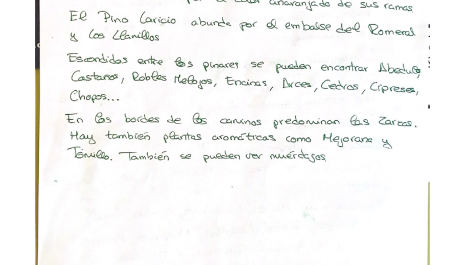 por el color anaranjado de sus ramas
El Pino Laricio abunda por el embalse del Romeral
y los Llanillos
Escondidos entre los pinares se pueden encontrar Abedules,
Castaños, Robles Melojos, Encinas, Arces, Cedros, Cipreses,
Chopos...
En los bordes de los caminos predominan las Zarzas.
Hay también plantas aromáticas como Mejorana y
Tomillo. También se pueden ver muérdagos